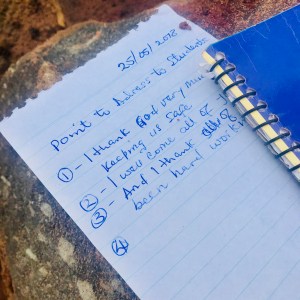 25/05/2018
Point to Address to Students
① - I thank God very much
Keeping us safe
② - I well come all of
③ - And I thank all of
been hard work
④